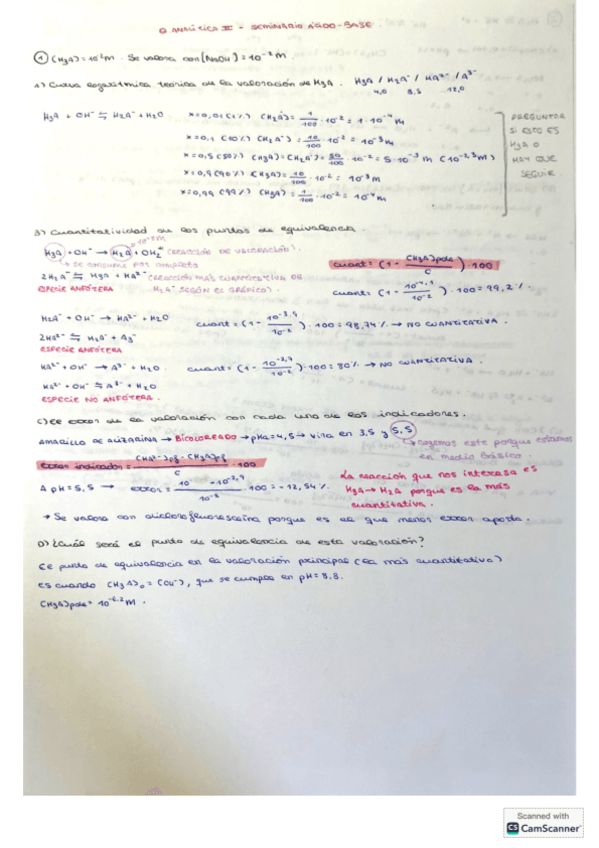 Q ANALÍTICA II - SEMINARIO ÁCIDO-BASE.
① (H₃A) = 10⁻²M. Se valora con (NaOH) = 10⁻² M
1) Curva logarítmica teórica de la valoración de H₃A. H₃A / H₂A⁻ / HA²⁻ / A³⁻
4,0 8,5 12,0
H₃A + OH⁻ ⇋ H₂A⁻ + H₂O x=0,01 (1%) (H₂A⁻) = 1/100 · 10⁻² = 1·10⁻⁴ M
x=0,1 (10%) (H₂A⁻) = 10/100 · 10⁻² = 10⁻³ M
x=0,5 (50%) (H₃A) = (H₂A⁻) = 50/100 · 10⁻² = 5·10⁻³ M (10⁻²'³ M)
x=0,9 (90%) (H₃A) = 10/100 · 10⁻² = 10⁻³ M
x=0,99 (99%) (H₃A) = 1/100 · 10⁻² = 10⁻⁴ M
PREGUNTAR
SI ESTO ES
H₃A O
HAY QUE
SEGUIR
B) Cuantitatividad de los puntos de equivalencia.
H₃A + OH⁻ → H₂A⁻ + OH₂ (REACCIÓN DE VALORACIÓN).
→ se consume por completo
2H₂A⁻ ⇋ H₃A + HA²⁻ (REACCIÓN MÁS CUANTITATIVA DE
ESPECIE ANFÓTERA H₂A⁻ SEGÚN EL GRÁFICO).
cuant = (1 - (H₃A)pole/C) · 100
cuant = (1 - /10⁻²) · 100 = 99,2%.
H₂A⁻ + OH⁻ → HA²⁻ + H₂O cuant = (1 - 10⁻³'⁹/10⁻²) · 100 = 98,74% → NO CUANTITATIVA.
2HA²⁻ ⇋ H₂A⁻ + A₃⁻
ESPECIE ANFÓTERA
HA²⁻ + OH⁻ → A³⁻ + H₂O. cuant = (1 - /10⁻²) · 100 = 80% → NO CUANTITATIVA.
HA²⁻ + OH⁻ ⇋ A³⁻ + H₂O
ESPECIE NO ANFÓTERA.
C) El error de la valoración con cada uno de los indicadores.
AMARILLO DE ALIZARINA → BICOLOREADO → pKa = 4,5 → vira en 3,5 y 5,5
→ cogemos este porque estamos
en medio básico.
error indicador = (HA²⁻)pf - (H₃A)pf/C · 100
La reacción que nos interesa es
H₃A → H₂A porque es la más
cuantitativa.
A pH = 5,5 → error = · 100 = -12,54%.
→ Se valora con diclorofluoresceína porque es el que menor error aporta.
D) ¿Cuál será el punto de equivalencia de esta valoración?
El punto de equivalencia en la valoración principal (la más cuantitativa)
es cuando (H₃A)₀ = (OH⁻), que se cumple en pH = 8,8.
(H₃A)pole = 10⁻⁶'² M.
Scanned with
CS CamScanner